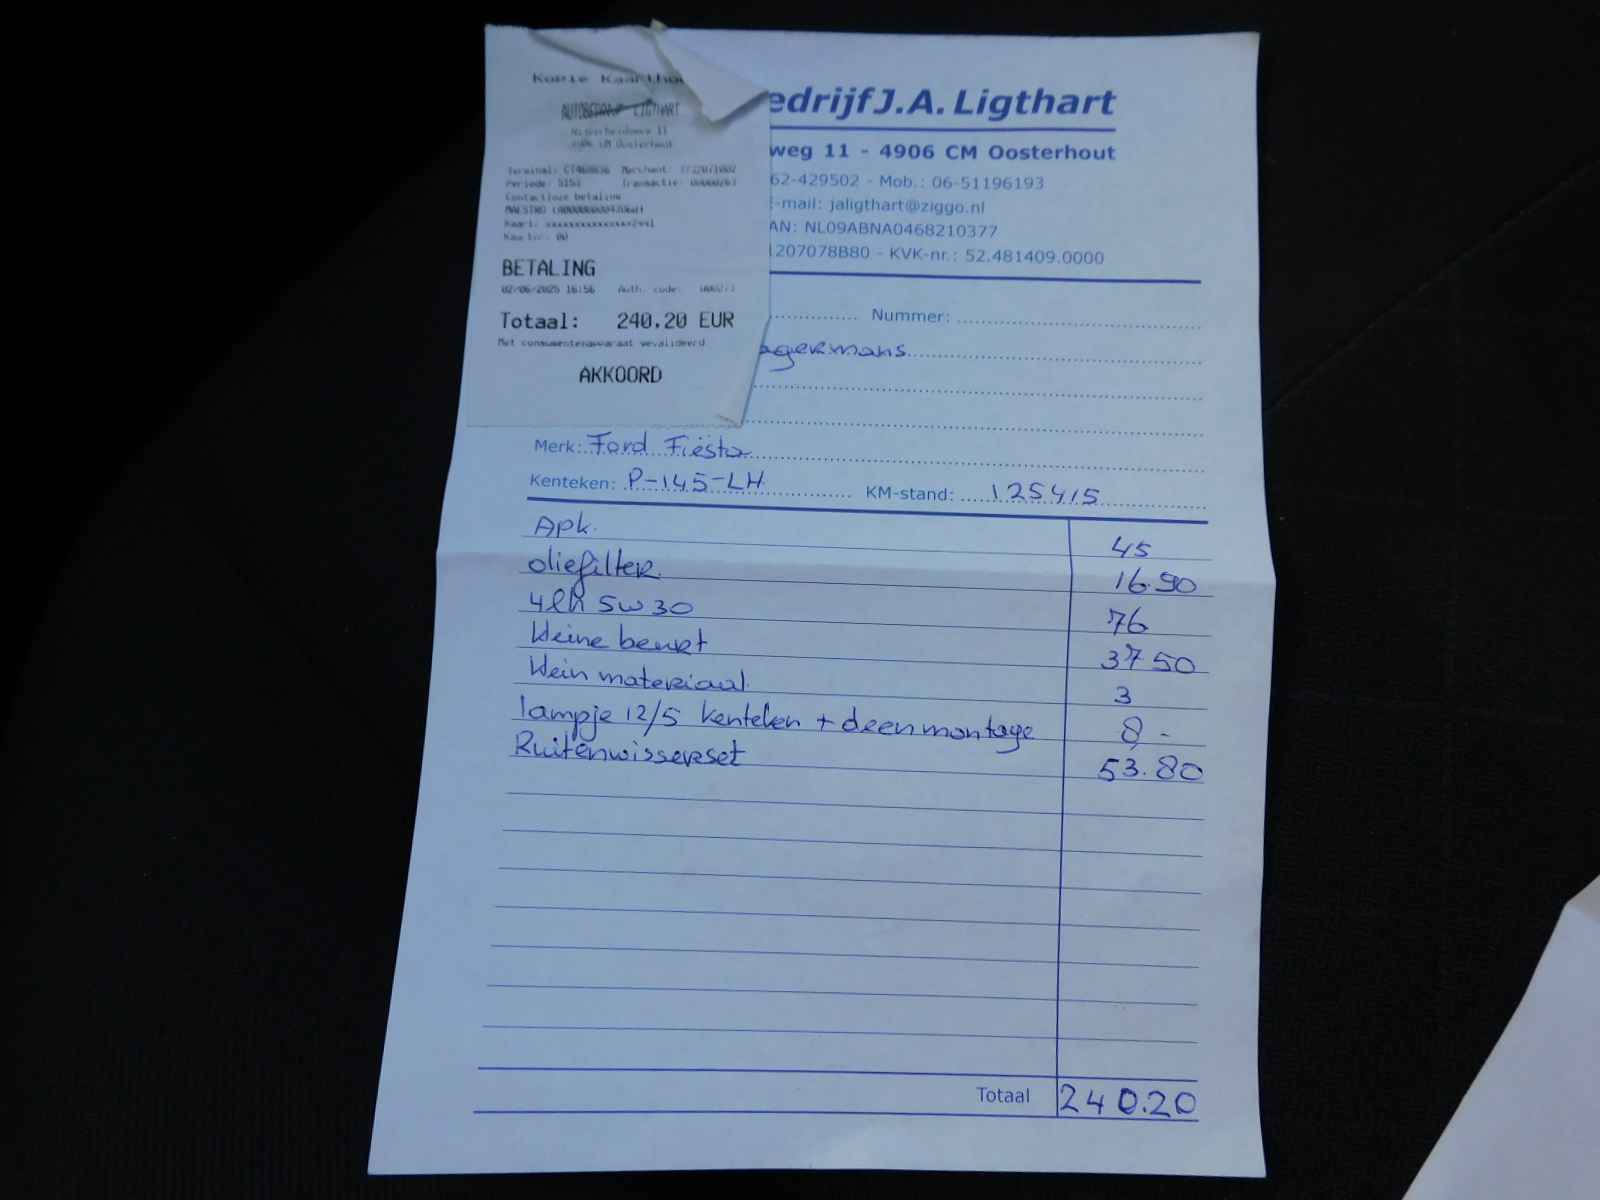 Kopie Kaarthou
AUTOBEDRIJF LIGTHART
4906 CM Oosterhout
Terminal: CT468636 Merchant:
Periode: 5153 Transactie:
Contactloze betaling
MAESTRO
Kaart:
Kaartnr: 00
BETALING
02/06/2025 16:56 Auth. code:
Totaal: 240.20 EUR
Met consumentenapparaat gevalideerd
AKKOORD
edrijf J.A. Ligthart
weg 11 - 4906 CM Oosterhout
62-429502 - Mob.: 06-51196193
-mail: jaligthart@ziggo.nl
AN: NL09ABNA0468210377
1207078B80 - KVK-nr.: 52.481409.0000
Nummer:
agermans
Merk: Ford Fiësta
Kenteken: P-145-LH KM-stand: 125415
Apk. 45
oliefilter 16.90
5W30 76
kleine beurt 37 50
klein materiaal 3
lampje 12/5 kenteken + deenmontage 8,-
Ruitenwisserset 53.80
Totaal 240.20